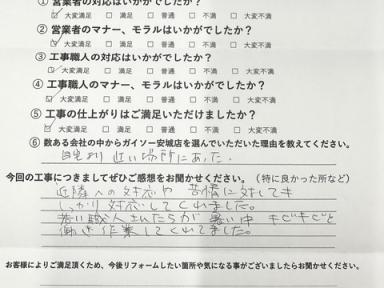 ① 営業者の対応はいかがでしたか？
☑ 大変満足 □ 満足 □ 普通 □ 不満 □ 大変不満
② 営業者のマナー、モラルはいかがでしたか？
☑ 大変満足 □ 満足 □ 普通 □ 不満 □ 大変不満
③ 工事職人の対応はいかがでしたか？
☑ 大変満足 □ 満足 □ 普通 □ 不満 □ 大変不満
④ 工事職人のマナー、モラルはいかがでしたか？
☑ 大変満足 □ 満足 □ 普通 □ 不満 □ 大変不満
⑤ 工事の仕上がりはご満足いただけましたか？
☑ 大変満足 □ 満足 □ 普通 □ 不満 □ 大変不満
⑥ 数ある会社の中からガイソー安城店を選んでいただいた理由を教えてください。
近い場所にあった.
今回の工事につきましてぜひご感想をお聞かせください。（特に良かった所など）
近隣への対応や 苦情に対してキ
しっかり 対応してくれました。
若い職人さんたちが 暑い中 キビキビと
働き 作業してくれてました。
お客様によりご満足頂くため、今後リフォームしたい箇所や気になる事がございましたらお聞かせください。